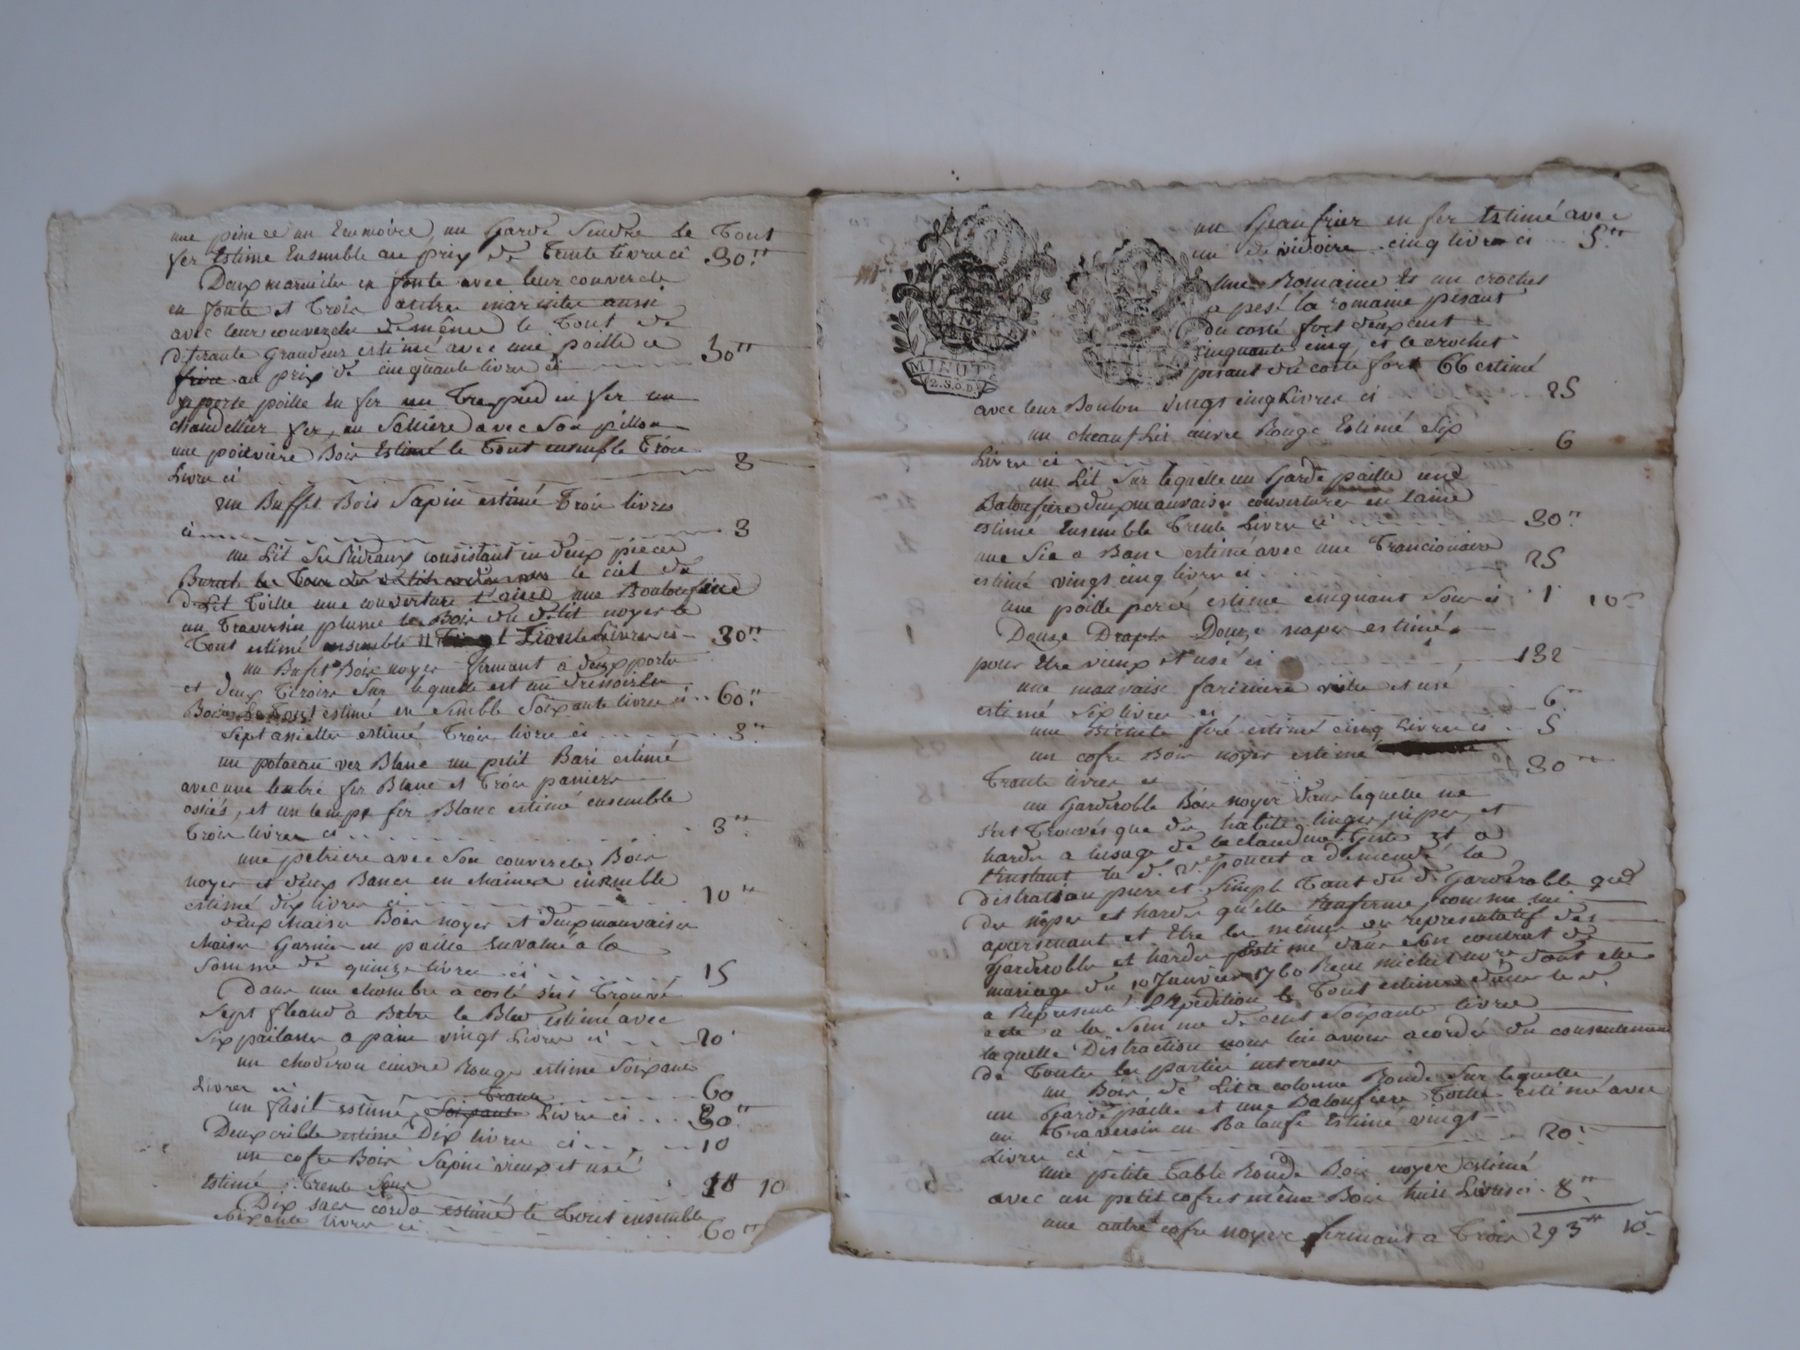 une pince un Ecumoire, un Garde Cendre le Tout
fer Estimé Ensemble au prix de Trente livres ci 30."
Deux marmites en fonte avec leur couvercle
en fonte et Trois autres marmites aussi
avec leur couvercle de même le Tout de
diferante Grandeur estimé avec une poille a
frire au prix de cinquante livres ci 50"
porte poille En fer un Trepied en fer un
chandellier fer, un Saliere avec Son pillon
une poivriere Bois Estimé le Tout ensemble Trois
Livres ci 3
un Buffet Bois Sapin estimé Trois livres
ci 3
un Lit Ses Rideaux consistant en deux pieces
le ciel du
dt Lit Toille une couverture Laine une Baloufiere
un Traversin plume le Bois du dt lit noyer le
Tout estimé ensemble Trante Livres ci 30."
un Bufet Bois noyer fermant a deux portes
et deux Tiroirs Sur lequelle est un dressoir
Bois estimé en semble Soixante livres ci 60."
Sept assiettes estimé Trois livres ci 3."
un poteau ver Blanc un petit Bari estimé
avec une fer Blanc et Trois paniers
osiés, et un lempe fer Blanc estimé ensemble
Trois livres ci 3."
une petriere avec Son couvercle Bois
noyer et deux Bancs en chaine ensemble
estimé dix livres ci 10"
deux chaises Bois noyer et deux mauvaises
chaises Garnies en paille Envalué a la
Somme de quinze livres ci 15
Dans une chambre a costé s'est Trouvé
Sept fleaud a Batre le Bled Estimé avec
Six paillasses a pain vingt Livres ci 20
un chodiron cuivre Rouge estimé Soixante
Livres ci 60
un fusil estimé Soixante Trante Livres ci 30"
Deux crible estimé Dix livres ci 10
un cofre Bois Sapin vieux et usé
Estimé Trente Sous 1 10
Dix sacs corde estimé le Tout ensemble
Soixante livres ci 60"
un en fer Estimé avec
un devidoire cinq livres ci 5"
Une Romaine Et un crochet
a pesé la romaine pesant
du costé fort deux cent
cinquante cinq et le crochet
pesant du costé fort 66 estimé
MINUTE
2.S.8.D.
avec leur Boulon vingt cinq Livres ci 25
un cheauf Lit cuivre Rouge Estimé Six
Livres ci 6
un Lit Sur lequelle un Garde paille une
Baloufiere deux mauvaises couvertures en laine
estimé Ensemble Trente Livres ci 30"
une Sie a Banc estimé avec une Trancionaire
estimé vingt cinq livres ci 25
une poille percé estimé cinquant Sous ci 1 10
Douze Draps Douze napes estimé
pour Etre vieux et usé ci 132
une mauvaise fariniere vielle et usé
estimé Six livres ci 6"
une estimé cinq Livres ci 5
un cofre Bois noyer estimé
Trante livres ci 30
un Garderobbe Bois noyer dans lequelle ne
s'est Trouvés que des habits linges nipes, et
hardes a lusage de la claudine Et a
l'instant la d. ve poncet a demandé la
distration pure et Simple Tant du dt Garderobbe que
des nipes et hardes qu'elle renferme, comme lui
apartenant et Etre les mêmes ou representatif des
Garderobbes et hardes Estimé dans Son contrat de
mariage du 10 Janvier 1760 Recu michel nore dont elle
a Representé L'Expedition le Tout estimé dans led.
acte a la Somme de cent Soixante livres
laquelle Distraction nous lui avons acordée du consentement
de Toutes les parties interessé
un Bois de Lit a colonne Ronde Sur lequelle
un Garde paille et une Baloufiere Toille estimé avec
un Traversin en Baloufe Estimé vingt
Livres ci 20."
une petite Table Ronde Bois noyer estimé
avec un petit cofre même Bois huit Livres ci 8."
une autre cofre noyer fermant a Trois 293" 10